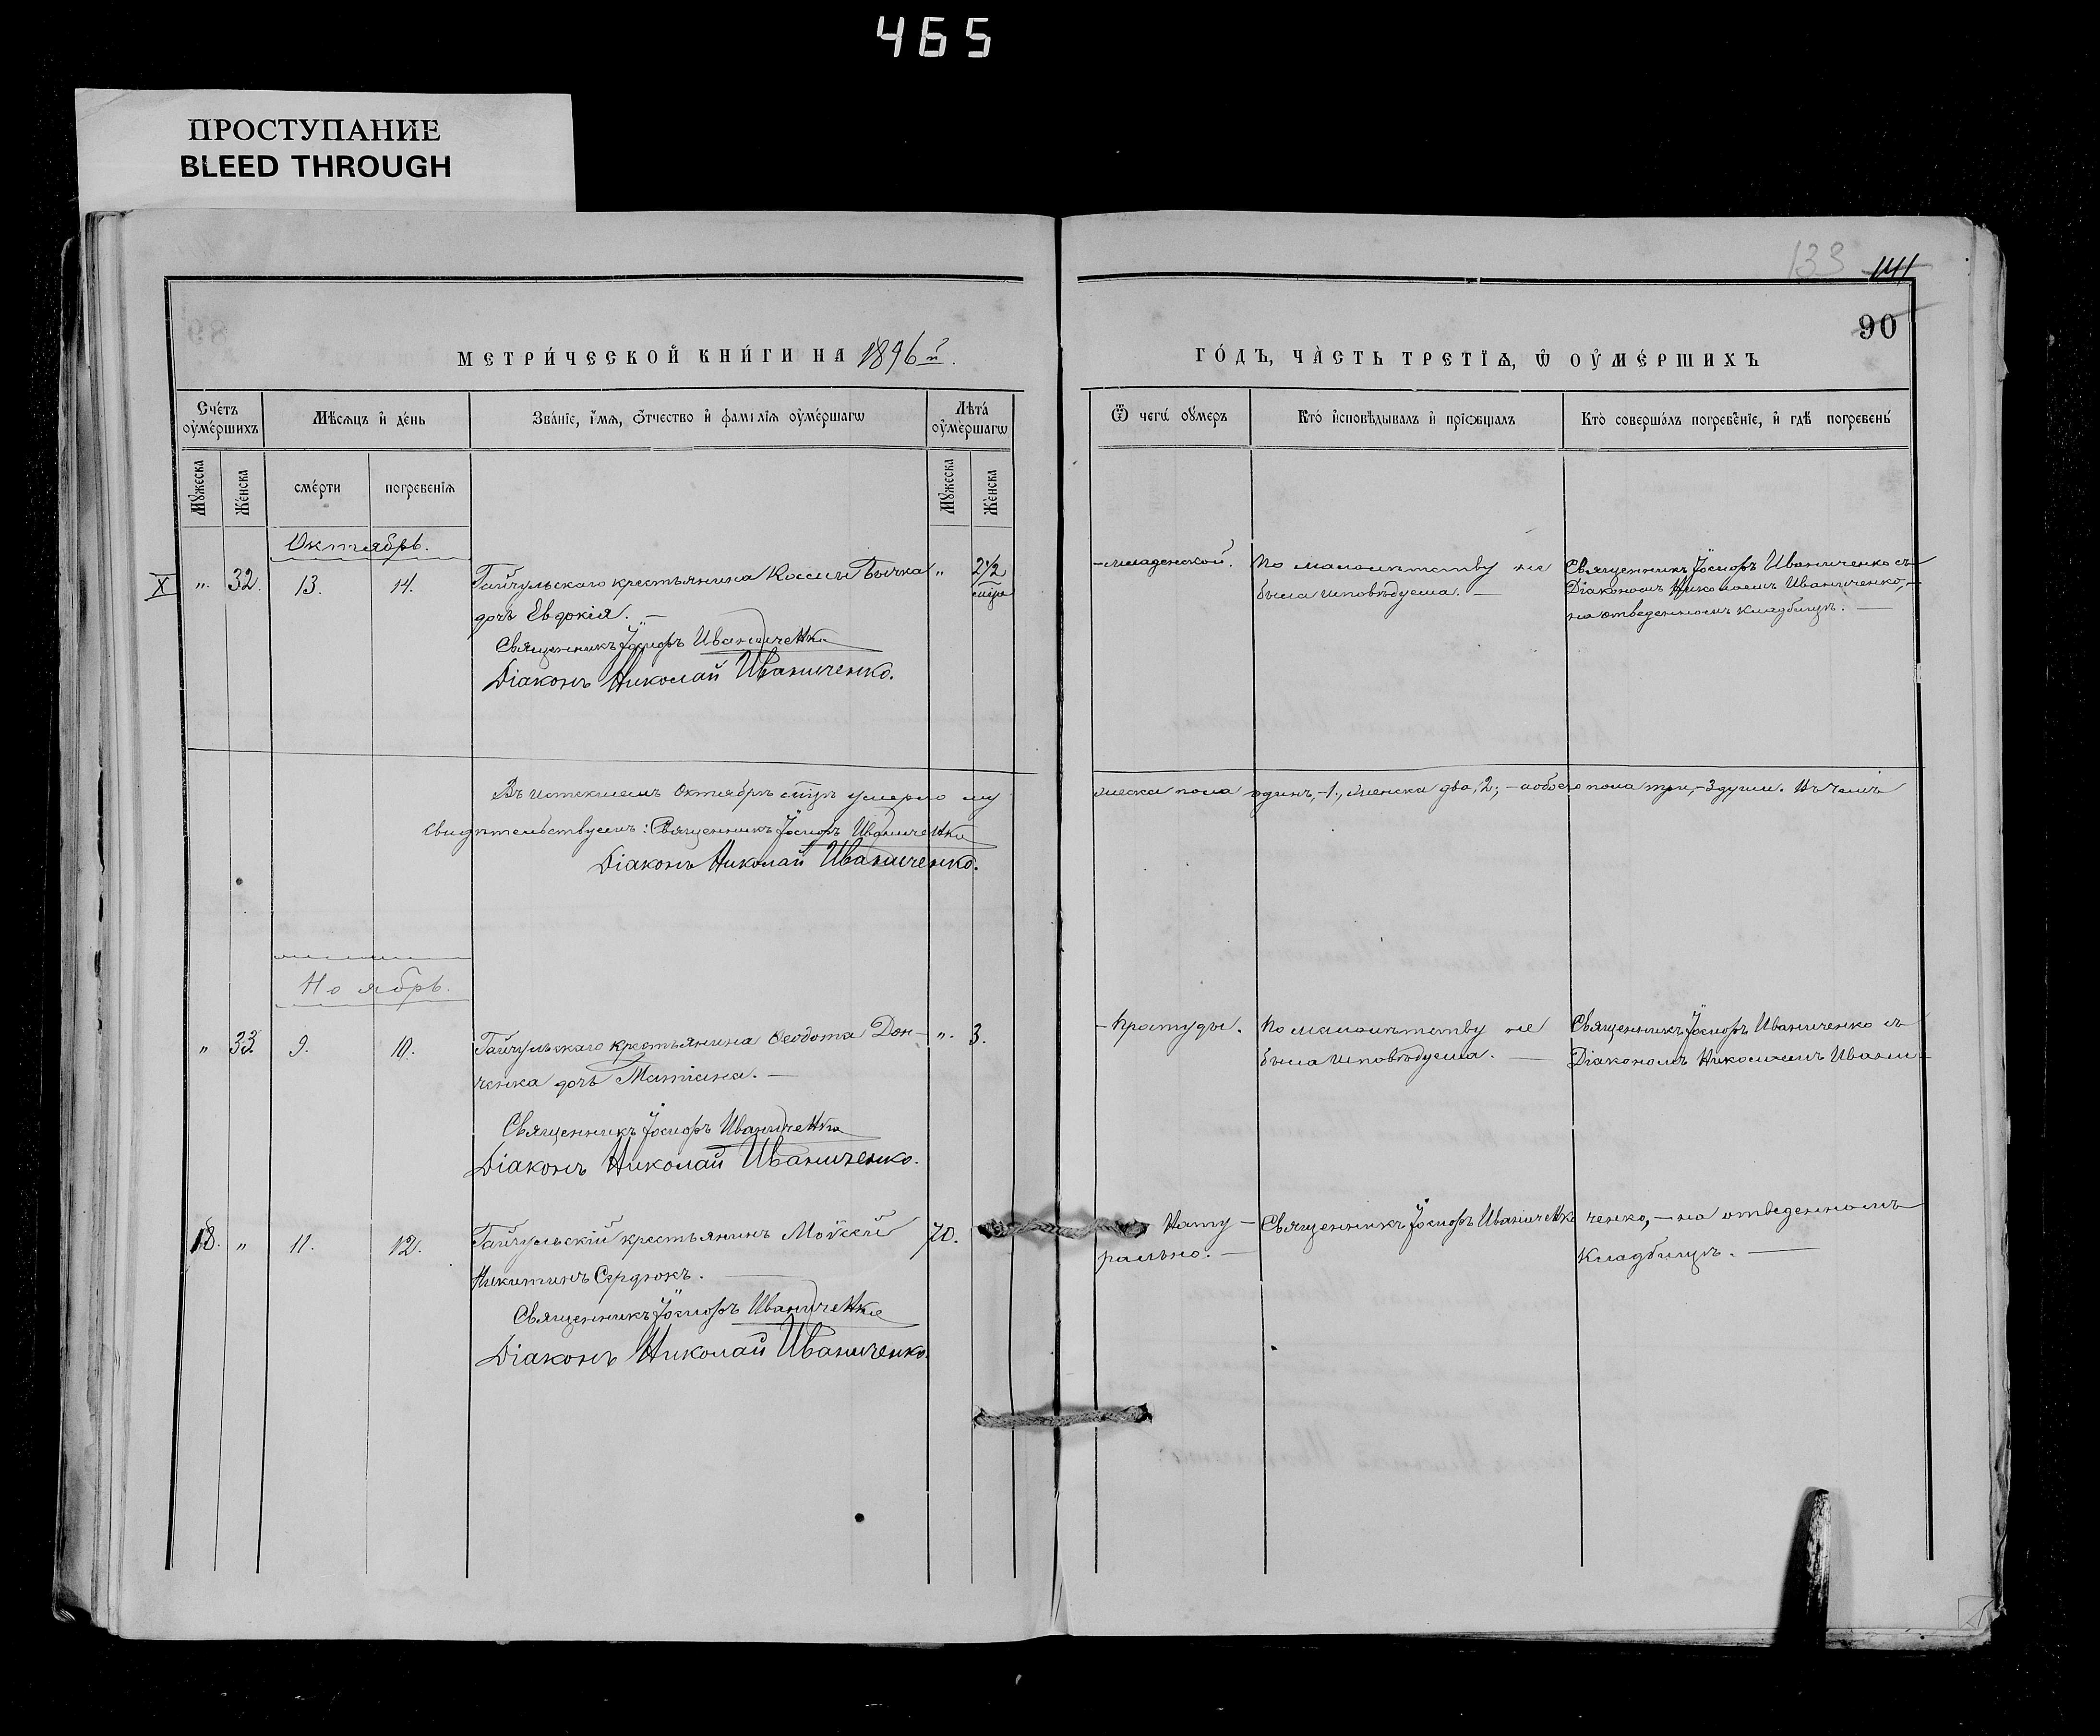 465
ПРОСТУПАНИЕ
BLEED THROUGH
133 141
90
МЕТРИ́ЧЕСКОЙ КНИ́ГИ НА 1896й.
ГО́ДЪ, ЧА̀СТЬ ТРЕТІѦ, Ѽ ОУ҆МЕ́РШИХЪ
Сче́тъ оу҆ме́ршихъ
Мѣсѧцъ и҆ де́нь
Зва́нїе, и҆́мѧ, ѻ҆́тчество и҆ фамилїѧ оу҆ме́ршагѡ
Лѣта̀ оу҆ме́ршагѡ
Ѿ чегѡ̀ оу҆́меръ
Кто̀ и҆сповѣ́дывалъ и҆ прїѻбща́лъ
Кто̀ соверша́лъ погребе́нїе, и҆ гдѣ̀ погребены̀
Мꙋ́жеска
Же́нска
сме́рти
погребе́нїѧ
Мꙋ́жеска
Же́нска
Октябрь.
X " 32. 13. 14. Гайчульскаго крестьянина Космы Бычка " 2½ мца
дочь Евдокія. —
Священникъ Іосифъ Иваниченко
Діаконъ Николай Иваниченко.
— младенской.
По малолѣтству не
была исповѣдуема. —
Священникъ Іосифъ Иваниченко съ
Діакономъ Николаемъ Иваниченко, —
на отведенномъ кладбищѣ. —
Въ истекшемъ Октябрѣ мцѣ умерло му
жеска пола одинъ, -1., женска два, 2; — а обоего пола три, -3 души. Въ чемъ
свидѣтельствуемъ: Священникъ Іосифъ Иваниченко
Діаконъ Николай Иваниченко.
Ноябрь.
" 33. 9. 10. Гайчульскаго крестьянина Ѳеодота Дон- ". 3.
ченка дочь Татіана. —
Священникъ Іосифъ Иваниченко
Діаконъ Николай Иваниченко.
— Простуды.
По малолѣтству не
была исповѣдуема. —
Священникъ Іосифъ Иваниченко съ
Діакономъ Николаемъ Ивани-
18. " 11. 12. Гайчульскій крестьянинъ Мойсей 70.
Никитинъ Сердюкъ. —
Священникъ Іосифъ Иваниченко
Діаконъ Николай Иваниченко.
Нату-
рально. —
Священникъ Іосифъ Иваниченко
ченко, — на отведенномъ
кладбищѣ. —